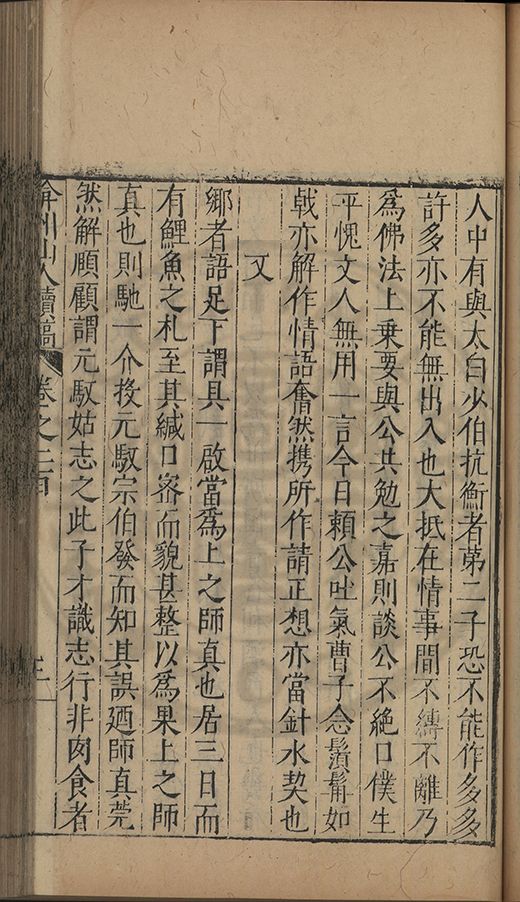 人中有與太白少伯抗衡者苐二子恐不能作多多
許多亦不能無出入也大抵在情事間不縛不離乃
為佛法上乗要與公共勉之嘉則談公不絶口僕生
平愧文人無用一言今日頼公吐氣曹子念鬚髯如
戟亦解作情語奮然携所作請正想亦當針水契也
又
鄉者語足下謂具一啟當為上之師真也居三日而
有鯉魚之札至其緘口宻而貌甚整以為果上之師
真也則馳一介授元馭宗伯發而知其誤廼師真莞
然解頋顧謂元馭姑志之此子才識志行非肉食者
弇州山人續稿 卷之二百